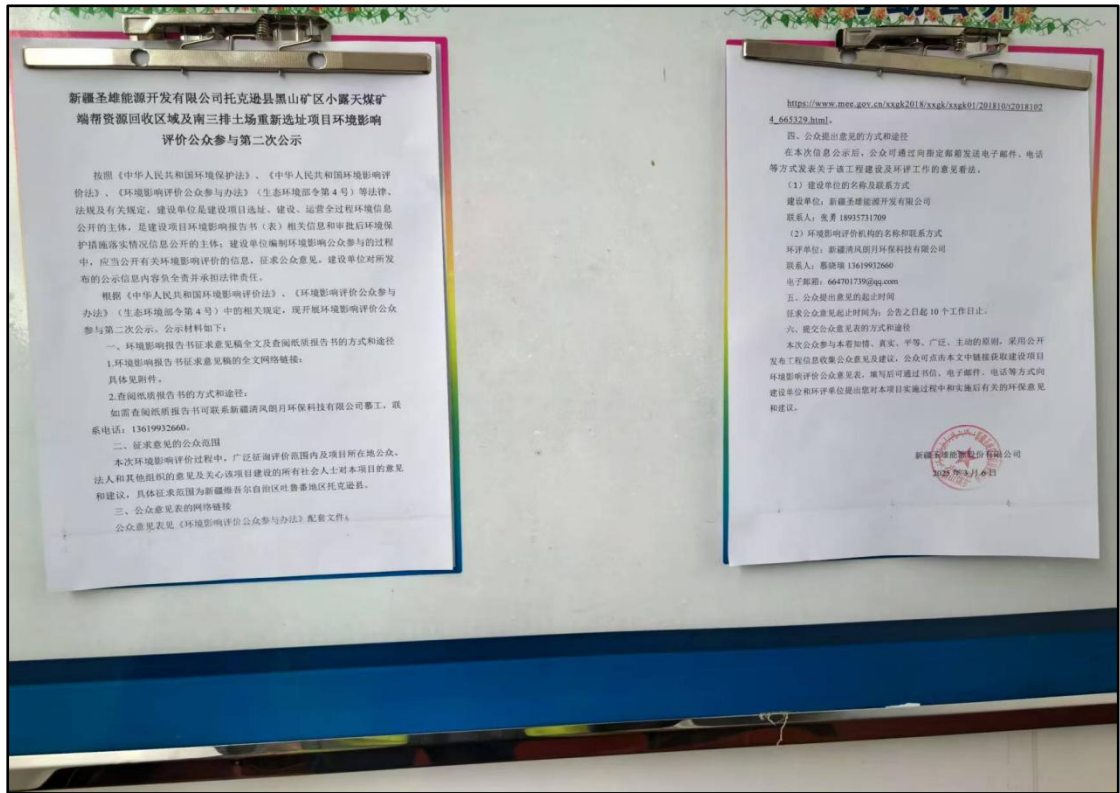 新疆圣雄能源开发有限公司托克逊县黑山矿区小露天煤矿
端帮资源回收区域及南三排土场重新选址项目环境影响
评价公众参与第二次公示
按照《中华人民共和国环境保护法》、《中华人民共和国环境影响评
价法》、《环境影响评价公众参与办法》（生态环境部令第4号）等法律、
法规及有关规定，建设单位是建设项目选址、建设、运营全过程环境信息
公开的主体，是建设项目环境影响报告书（表）相关信息和审批后环境保
护措施落实情况信息公开的主体；建设单位编制环境影响公众参与的过程
中，应当公开有关环境影响评价的信息，征求公众意见。建设单位对所发
布的公示信息内容负全责并承担法律责任。
根据《中华人民共和国环境影响评价法》、《环境影响评价公众参与
办法》（生态环境部令第4号）中的相关规定，现开展环境影响评价公众
参与第二次公示。公示材料如下：
一、环境影响报告书征求意见稿全文及查阅纸质报告书的方式和途径
1.环境影响报告书征求意见稿的全文网络链接：
具体见附件。
2.查阅纸质报告书的方式和途径：
如需查阅纸质报告书可联系新疆清风朗月环保科技有限公司慕工，联
系电话：13619932660。
二、征求意见的公众范围
本次环境影响评价过程中，广泛征询评价范围内及项目所在地公众、
法人和其他组织的意见及关心该项目建设的所有社会人士对本项目的意见
和建议，具体征求范围为新疆维吾尔自治区吐鲁番地区托克逊县。
三、公众意见表的网络链接
公众意见表见《环境影响评价公众参与办法》配套文件：
https://www.mee.gov.cn/xxgk2018/xxgk/xxgk01/201810/t2018102
4_665329.html。
四、公众提出意见的方式和途径
在本次信息公示后，公众可通过向指定邮箱发送电子邮件、电话
等方式发表关于该工程建设及环评工作的意见看法。
（1）建设单位的名称及联系方式
建设单位：新疆圣雄能源开发有限公司
联系人：张勇 18935731709
（2）环境影响评价机构的名称和联系方式
环评单位：新疆清风朗月环保科技有限公司
联系人：慕晓瑞 13619932660
电子邮箱：664701739@qq.com
五、公众提出意见的起止时间
征求公众意见起止时间为：公告之日起10个工作日止。
六、提交公众意见表的方式和途径
本次公众参与本着知情、真实、平等、广泛、主动的原则，采用公开
发布工程信息收集公众意见及建议，公众可点击本文中链接获取建设项目
环境影响评价公众意见表，填写后可通过书信、电子邮件、电话等方式向
建设单位和环评单位提出您对本项目实施过程中和实施后有关的环保意见
和建议。
新疆圣雄能源股份有限公司
2025年3月6日